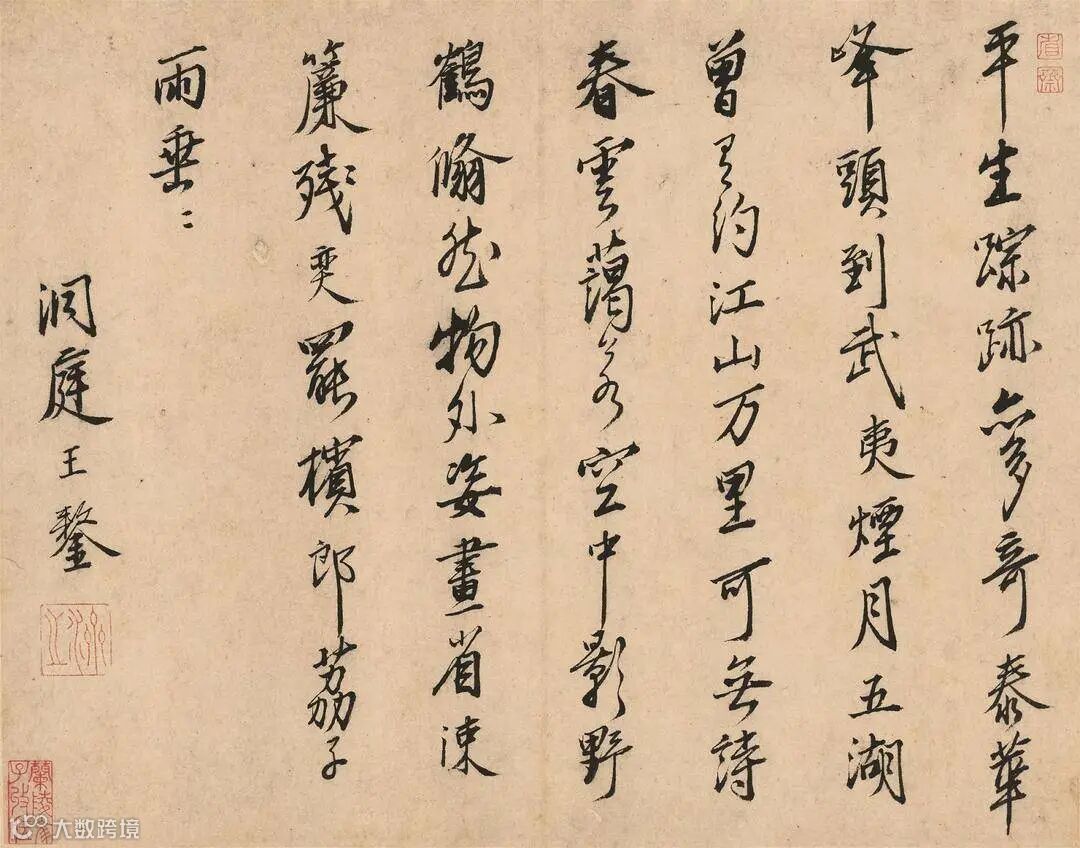 平生踪跡亦多奇泰華
峰頭到武夷煙月五湖
曾有约江山万里可無詩
春雲藹若空中影野
鶴翛然物外姿畫省疎
簾残奕罷檳郎茘子
雨垂〻
洞庭王鏊
大数跨境